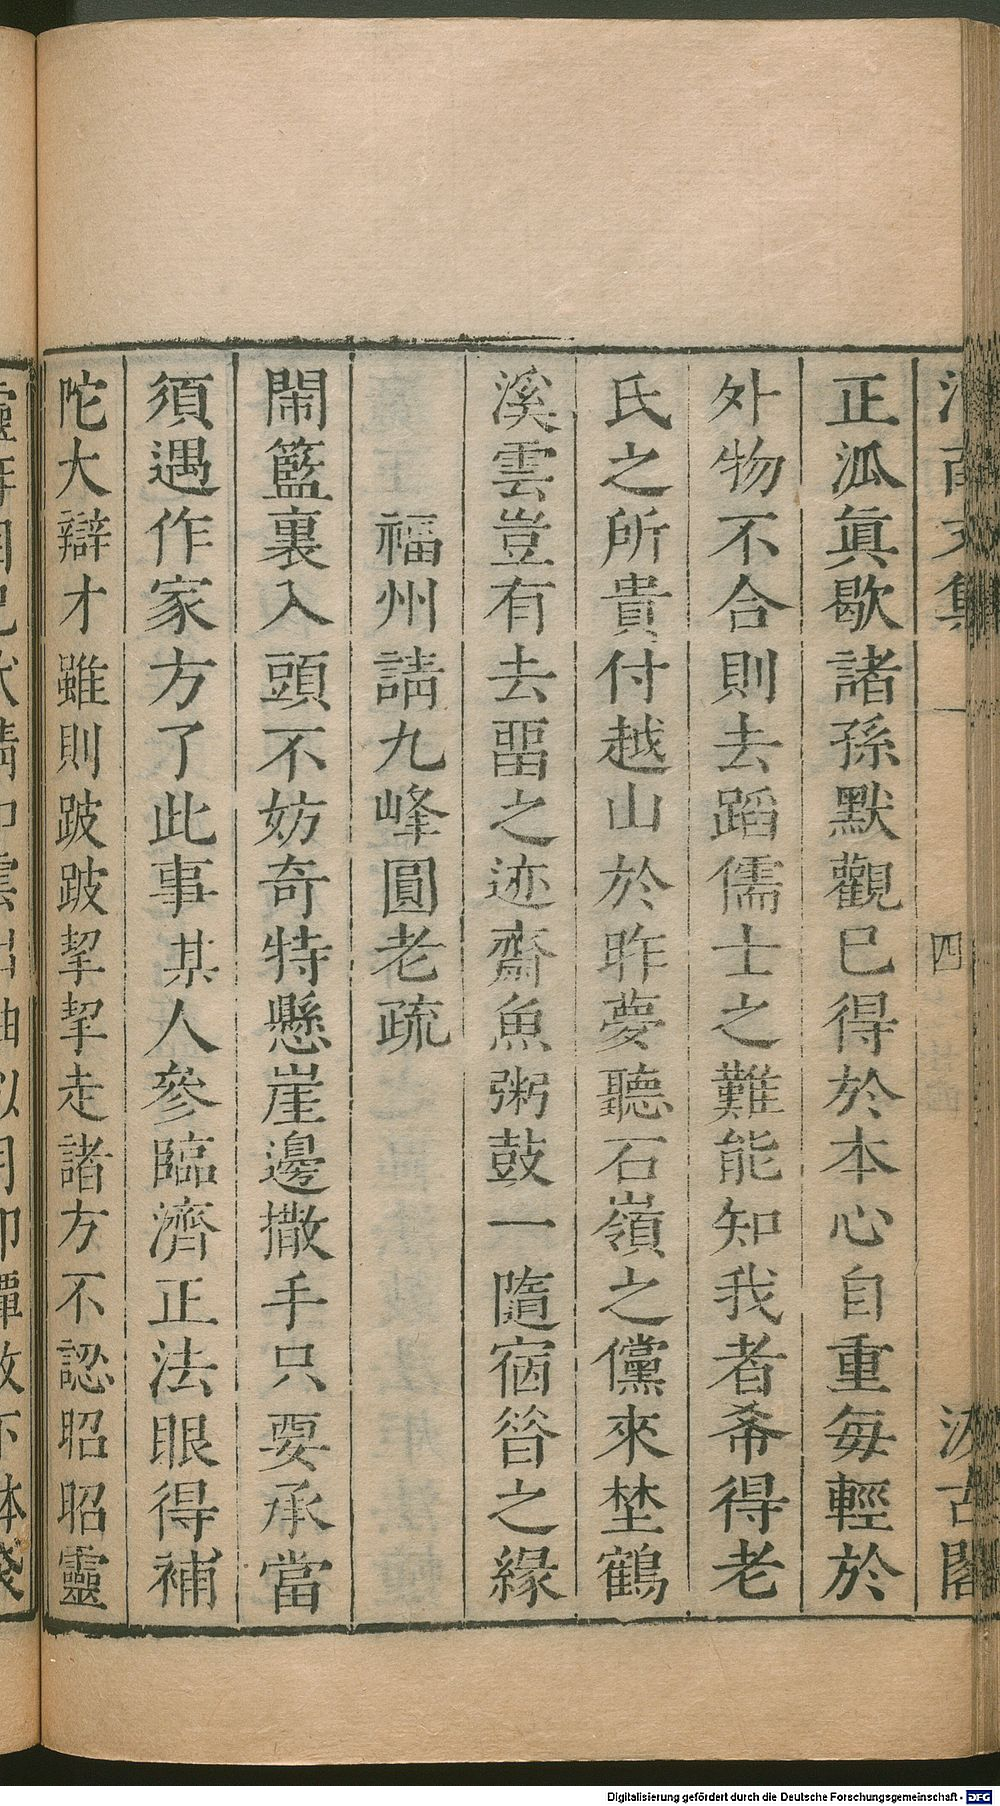 正泒眞歇諸孫默觀巳得於本心自重每輕於
外物不合則去蹈儒士之難能知我者希得老
氏之所貴付越山於昨夢聽石嶺之儻來埜鶴
溪雲豈有去畱之迹齋魚粥鼓一隨宿昝之緣
福州請九峰圓老疏
閙籃裏入頭不妨奇特懸崖邊撒手只要承當
須遇作家方了此事某人參臨濟正法眼得補
陀大辯才雖則跛跛挈挈走諸方不認昭昭靈
四
汲古閣
Digitalisierung gefördert durch die Deutsche Forschungsgemeinschaft - DFG